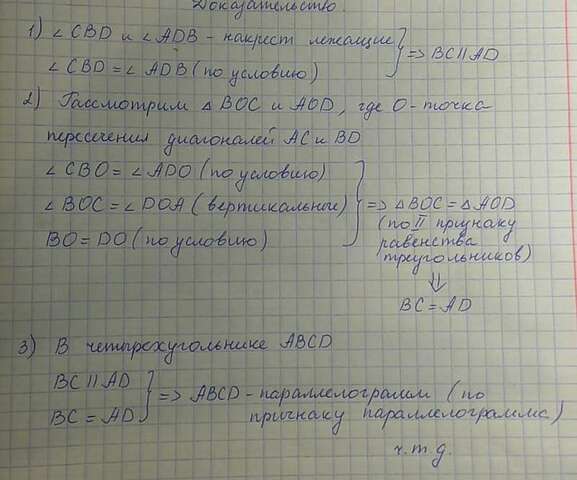 Доказательство.
1) ∠ CBD и ∠ ADB - накрест лежащие
∠ CBD = ∠ ADB (по условию)
=> BC || AD
2) Рассмотрим △ BOC и AOD, где O - точка
пересечения диагоналей AC и BD
∠ CBO = ∠ ADO (по условию)
∠ BOC = ∠ DOA (вертикальные)
BO = DO (по условию)
=> △ BOC = △ AOD
(по II признаку
равенства
треугольников)
⇓
BC = AD
3) В четырехугольнике ABCD
BC || AD
BC = AD
=> ABCD - параллелограмм (по
признаку параллелограмма)
ч.т.д.